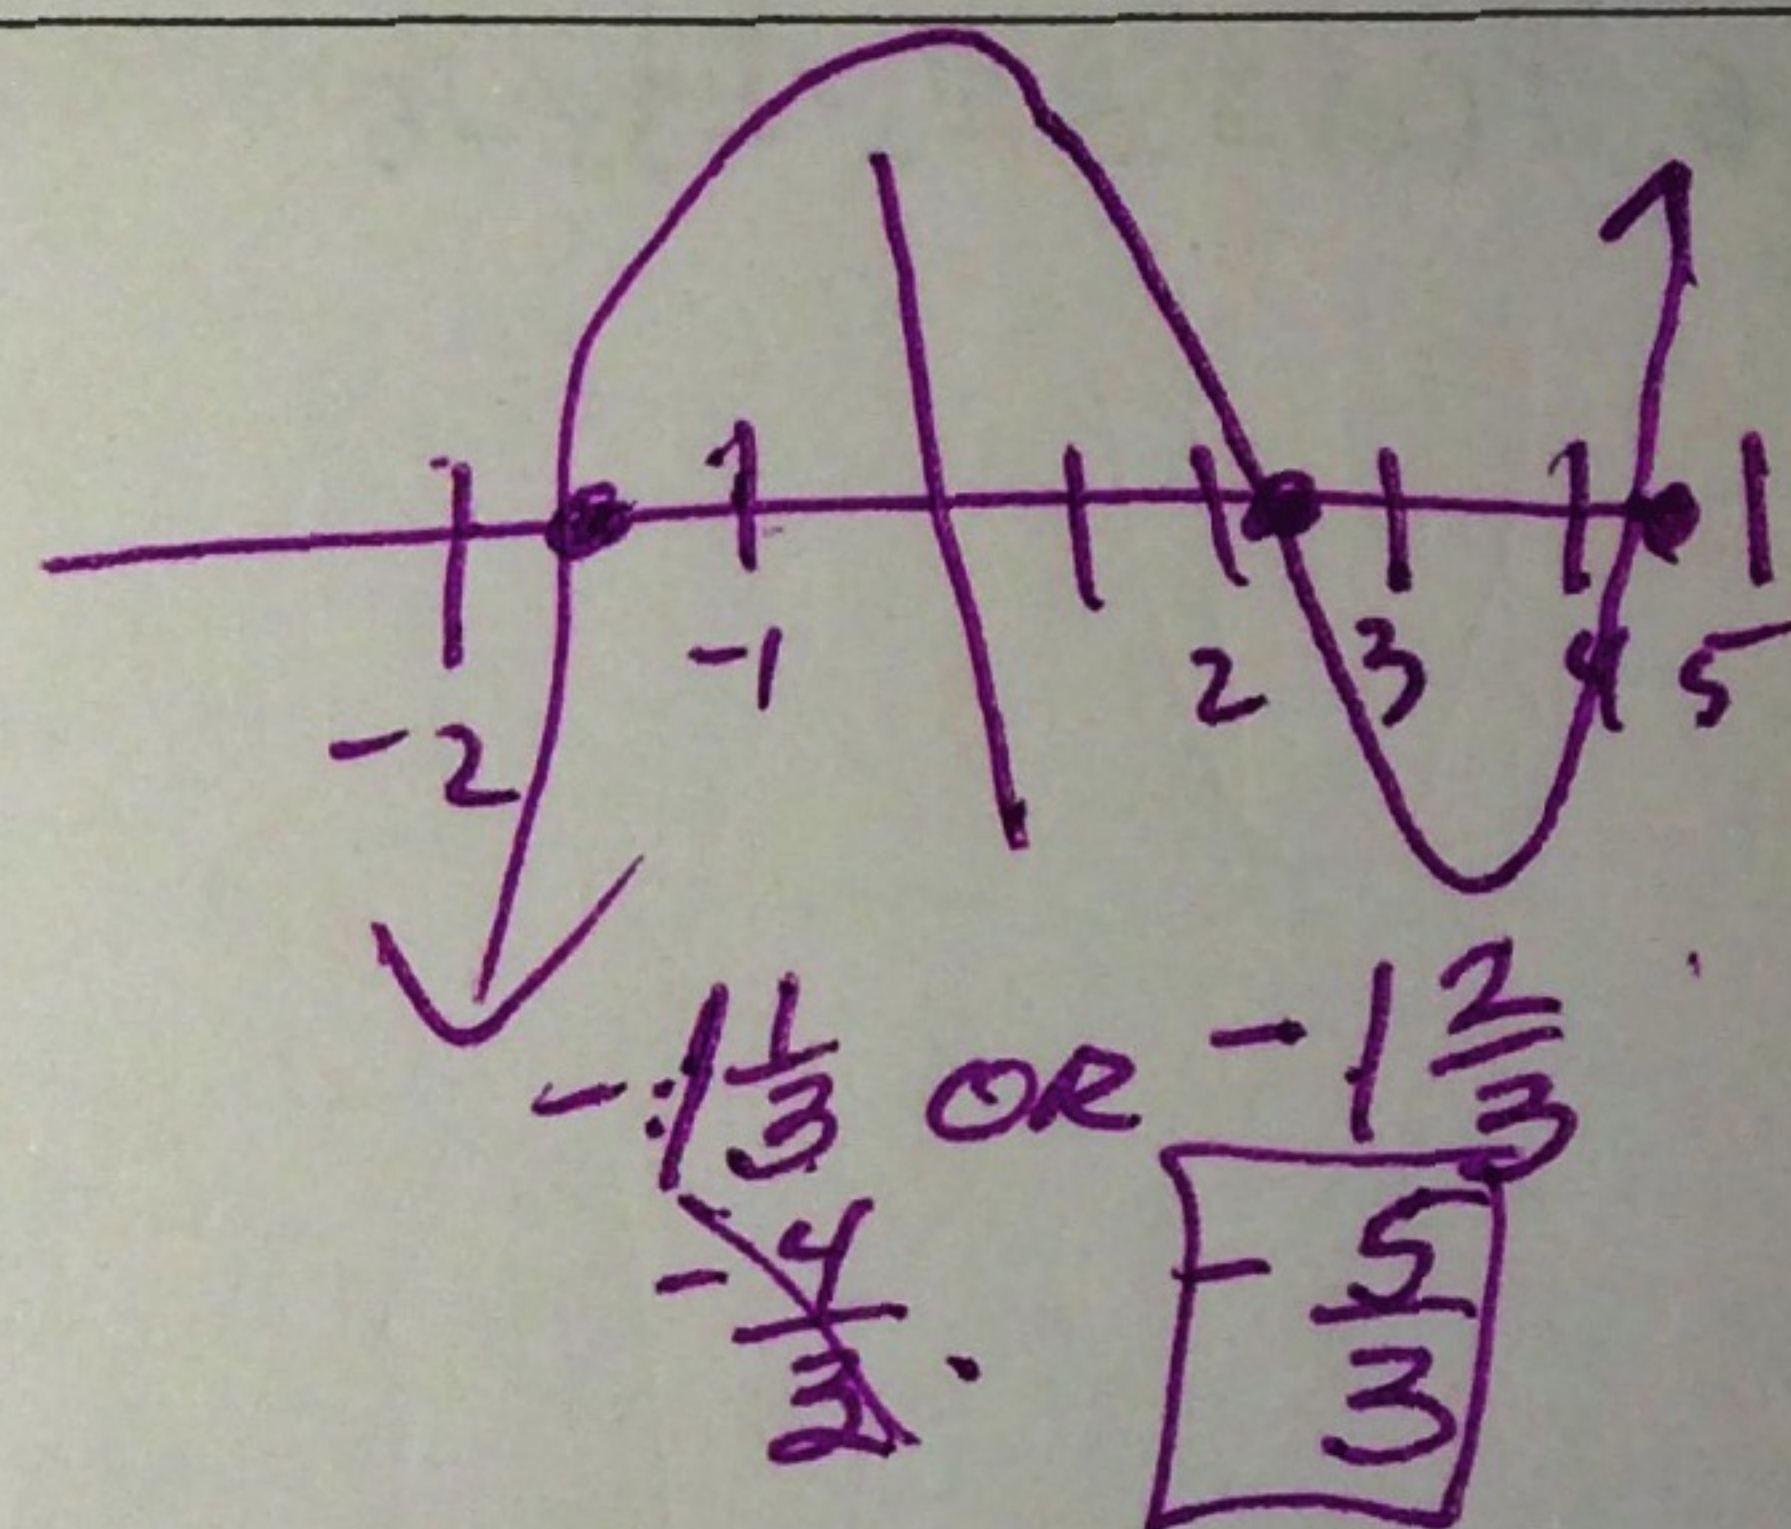 -2 -1 2 3 4 5
-1 1/3 OR -1 2/3
-4/3 -5/3